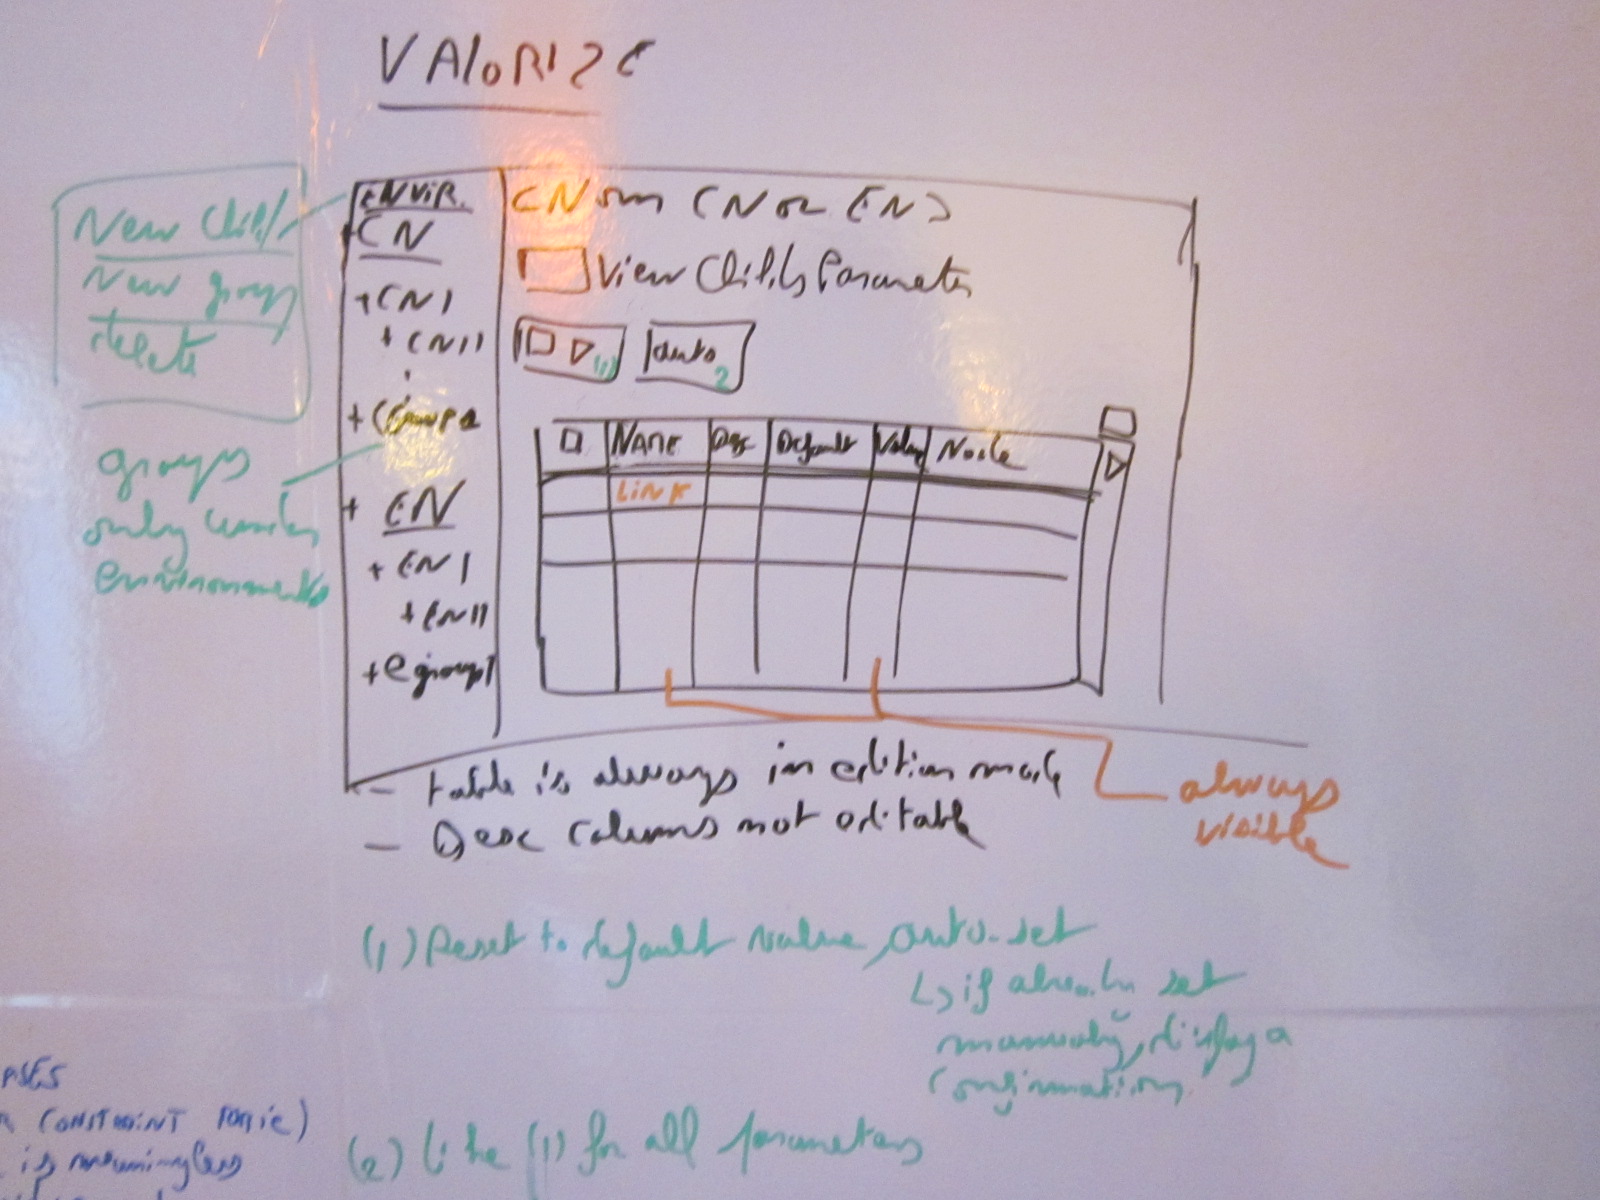 VAlORIZE
New Child
New group
delete
groups
only under
environments
ENVIR.
CN
+CN1
+CN11
+CGroup a
+ EN
+ EN1
+ EN11
+ e group1
CNom (N or EN)
View Childs Parameter
(1)
auto
2
NAME Desc Default Value Node
LINK
- table is always in edition mode
- Desc columns not editable
always
visible
(1) Reset to default value, auto-set
↳ if already set
manually, display a
confirmation
(2) like (1) for all parameters
CONSTRAINT
is meaningless